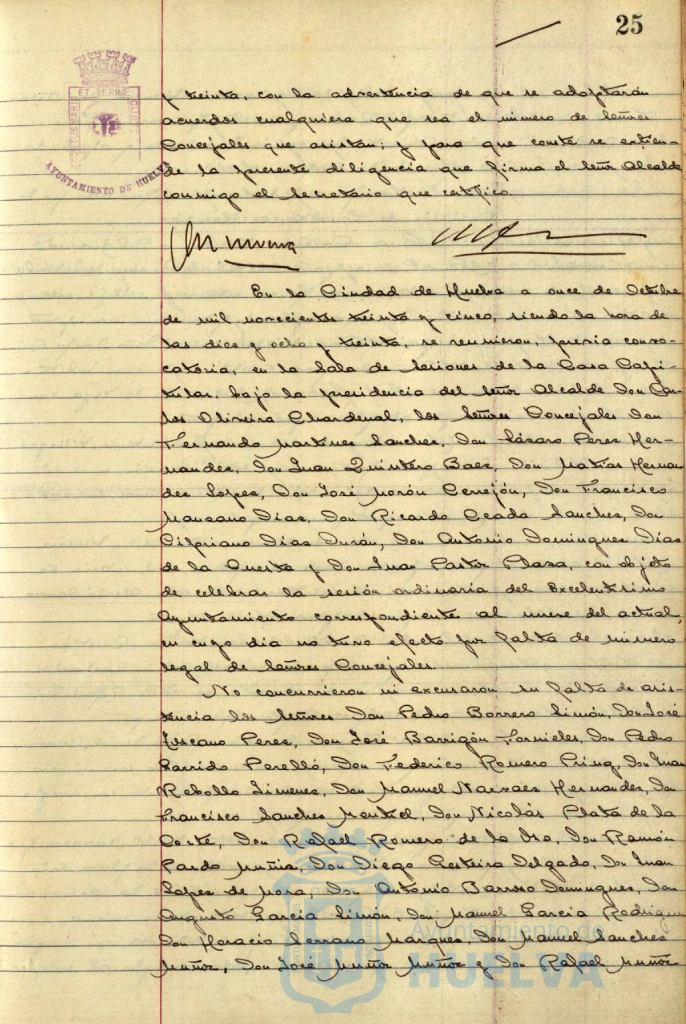 25
y treinta, con la advertencia de que se adoptarán
acuerdos cualquiera que sea el número de Señores
Concejales que asistan; y para que conste se extien-
de la presente diligencia que firma el Señor Alcalde
conmigo el Secretario que certifico.
ET TERRE
AYUNTAMIENTO DE HUELVA
En la Ciudad de Huelva a once de Octubre
de mil novecientos treinta y cinco, siendo la hora de
las diez y ocho y treinta, se reunieron, previa convo-
catoria, en la Sala de Sesiones de la Casa Capi-
tular, bajo la presidencia del Señor Alcalde Don Car-
los Oliveira Chardenal, los Señores Concejales Don
Fernando Martinez Sanchez, Don Lázaro Perez Her-
nandez, Don Juan Quintero Baez, Don Matias Hernan
dez Lopez, Don José Morón Cerrejón, Don Francisco
Manzano Dias, Don Ricardo Ceada Sanchez, Don
Cipriano Dias Durán, Don Antonio Dominguez Dias
de la Cuesta y Don Juan Pastor Plaza, con objeto
de celebrar la sesión ordinaria del Excelentísimo
Ayuntamiento correspondiente al nueve del actual,
en cuyo dia no tuvo efecto por falta de número
legal de Señores Concejales.
No concurrieron ni excusaron su falta de asis-
tencia los Señores Don Pedro Borrero Limón, Don José
Toscano Perez, Don José Barrigón Fornieles, Don Pedro
Garrido Perelló, Don Federico Romero Don Juan
Rebollo Jimenez, Don Manuel Narvaez Hernandez, Don
Francisco Sanchez Don Nicolás Plata de la
Corte, Don Rafael Romero de la Don Ramón
Pardo Don Diego Delgado, Don Juan
Lopez de Mora, Don Antonio Barroso Dominguez, Don
Augusto Garcia Limón, Don Manuel Garcia
Don Horacio Serrano Marquez, Don Manuel Sanchez
Muñoz, Don José Muñoz Muñoz y Don Rafael Muñoz
Ayuntamiento de
HUELVA